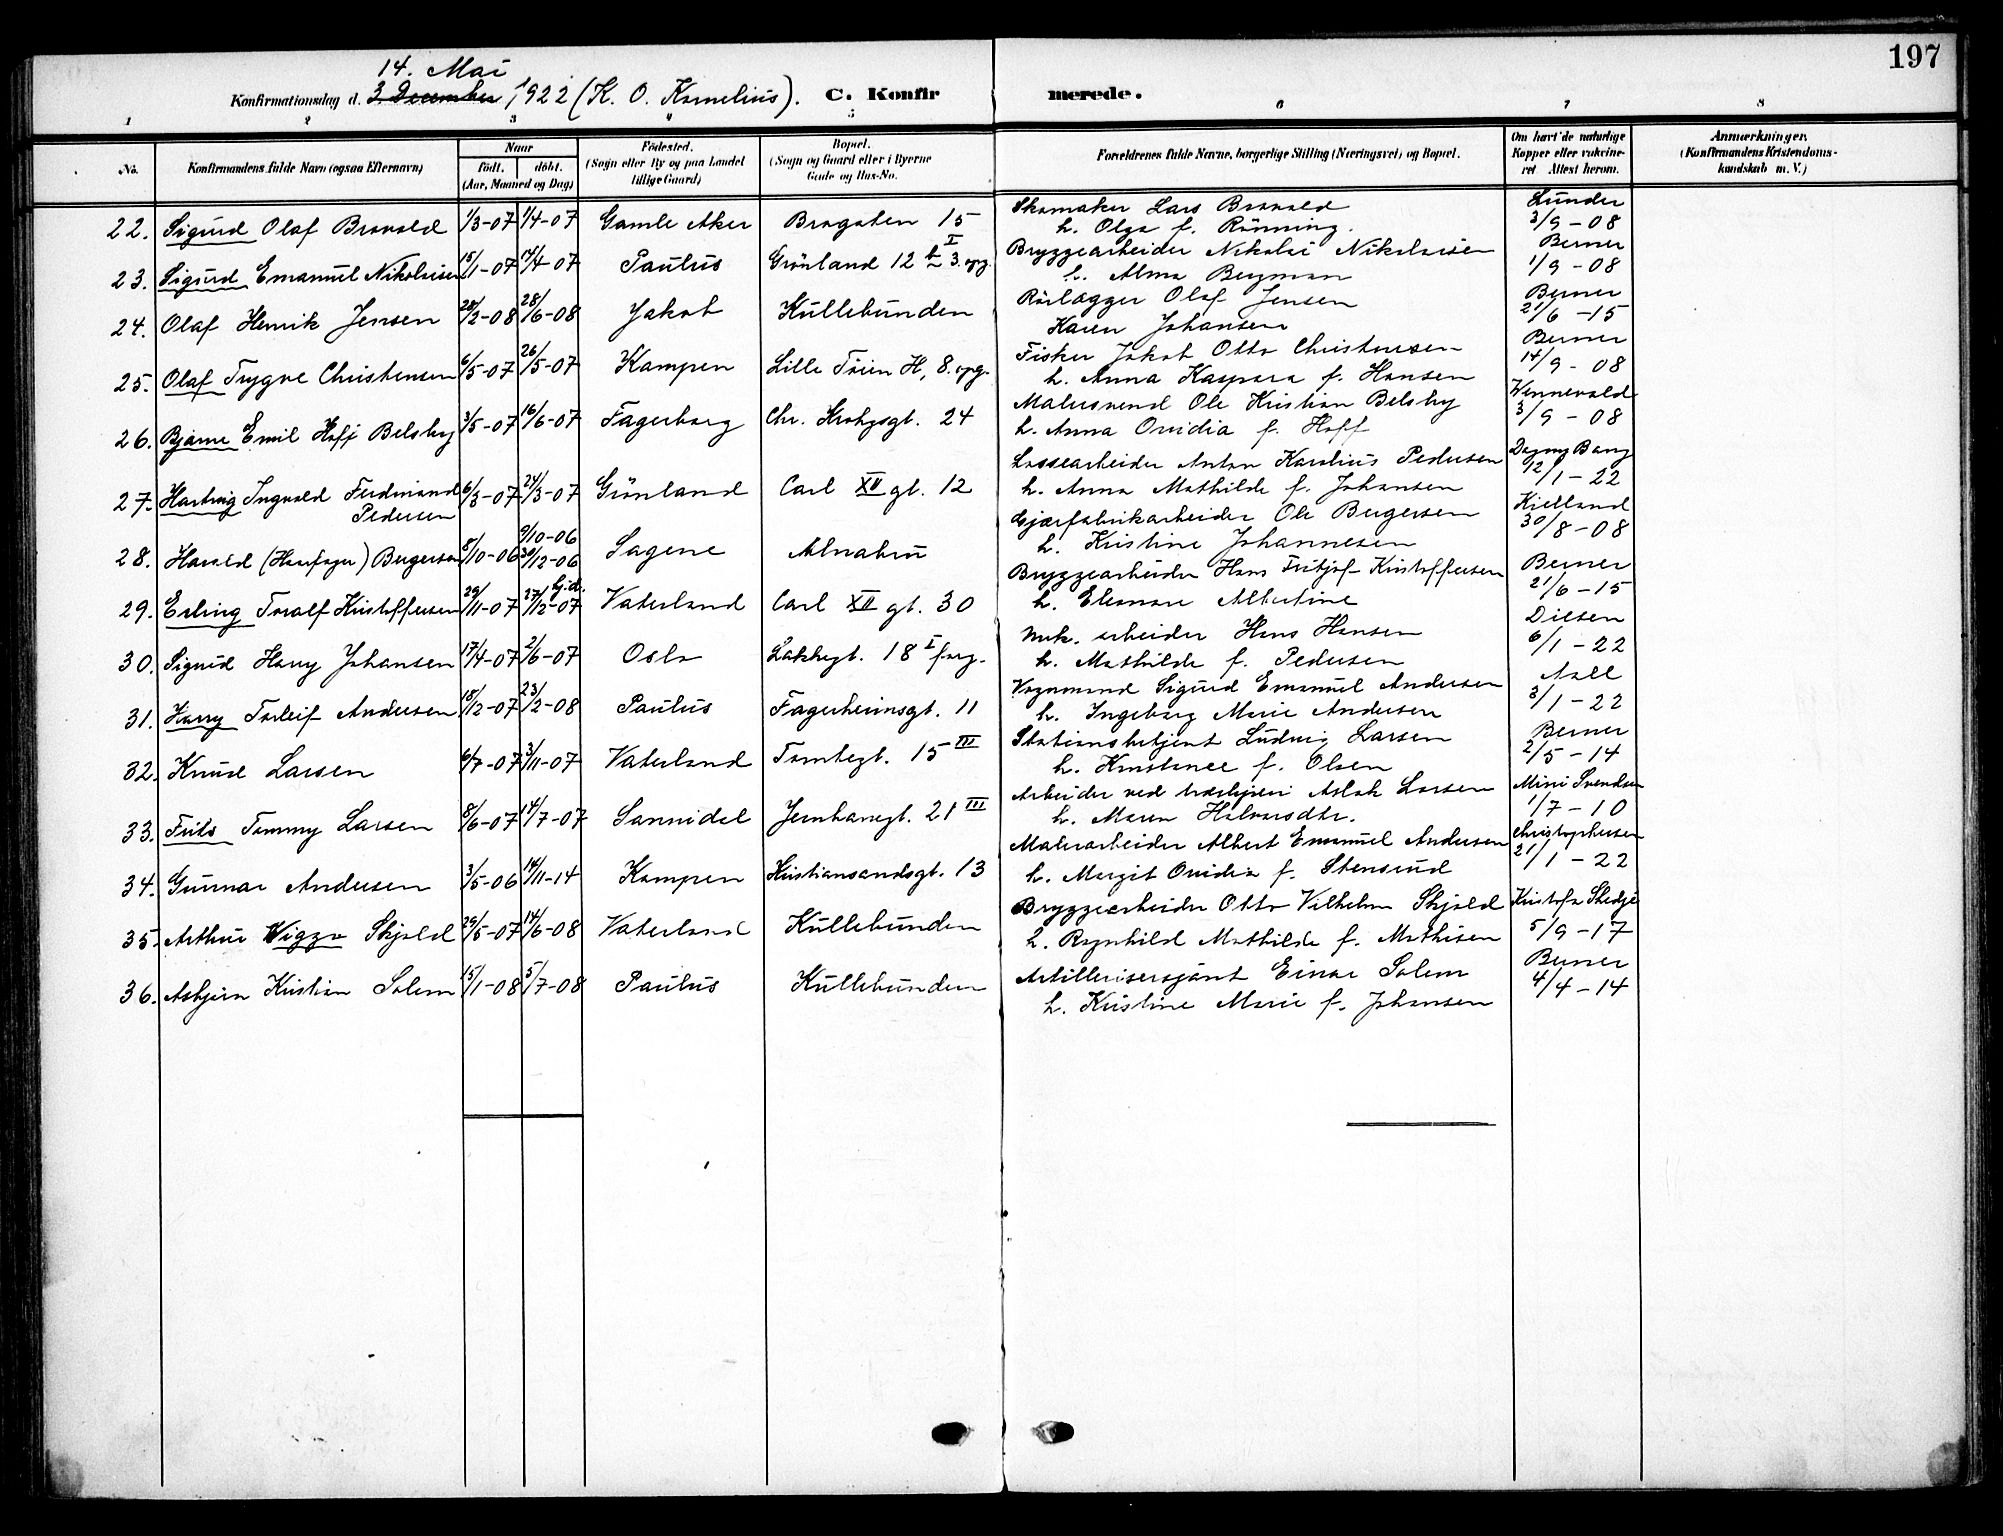 197
14. Mai
Konfirmationsdag d. 3. December 1922 (K. O. Kornelius). C. Konfirmerede.
1 2 3 4 5 6 7 8
No. Konfirmandens fulde Navn (ogsaa Efternavn) Naar Födt. döbt. (Aar, Maaned og Dag) Födested. (Sogn eller By og paa Landet tillige Gaard) Bopæl. (Sogn og Gaard eller i Byerne Gade og Hus-No. Forældrenes fulde Navne, borgerlige Stilling (Næringsvei) og Bopæl. Om havt de naturlige Kopper eller vakcineret. Attest herom. Anmærkninger. (Konfirmandens Kristendomskundskab m. V.)
22. Sigurd Olaf Bravold 1/3-07 1/4-07 Gamle Aker Brogaten 15 Skomaker Lars Bravold Lunder
h. Olga f. Rönning. 3/9-08
23. Sigurd Emanuel Nikolaisen 15/1-07 14/4-07 Paulus Grönland 12 b I 3. opg. Bryggearbeider Nikolai Nikolaisen Berner
h. Alma Bergman 1/9-08
24. Olaf Henrik Jensen 28/2-08 28/6-08 Jakob Kullebunden Rörlægger Olaf Jensen Berner
Karen Johansen 21/6-15
25. Olaf Trygve Christensen 6/5-07 26/5-07 Kampen Lille Töien H, 8. opg. Fisker Jakob Otto Christensen Berner
h. Anna Kaspara f. Hansen 14/9-08
26. Bjarne Emil Hoff Belsby 3/5-07 16/6-07 Fagerborg Chr. Krohgsgt. 24 Malersvend Ole Kristian Belsby Wennevold
h. Anna Ovidia f. Hoff 3/9-08
27. Hartvig Ingvald Ferdinand Pedersen 6/3-07 24/3-07 Grönland Carl XII gt. 12 Lossearbeider Anton Karolius Pedersen Dagny Bang
h. Anna Mathilde f. Johansen 12/1-22
28. Harald (Haarfager) Bergersen 8/10-06 9/10-06 30/12-06 Sagene Alnabru Gjærfabrikarbeider Ole Bergersen Kielland
h. Kristine Johannesen 30/8-08
29. Erling Toralf Kristoffersen 29/11-07 27/12-07 Gid. Vaterland Carl XII gt. 30 Bryggearbeider Hans Fritjof Kristoffersen Berner
h. Eleonore Albertine 21/6-15
30. Sigurd Harry Johansen 17/4-07 2/6-07 Oslo Lakkegt. 18 I forg. Mek. arbeider Hans Hansen Diesen
h. Mathilde f. Pedersen 6/1-22
31. Harry Torleif Andersen 18/12-07 23/2-08 Paulus Fagerheimsgt. 11 Vognmand Sigurd Emanuel Andersen Aall
h. Ingeborg Marie Andersen 3/1-22
32. Knud Larsen 6/7-07 3/11-07 Vaterland Tomtegt. 15 III Stationsbetjent Ludvig Larsen Berner
h. Konstance f. Olsen 2/5-14
33. Frits Tommy Larsen 8/6-07 14/7-07 Sannidal Jernbanegt. 21 III Arbeider ved træsliperi Aslak Larsen Mimi Svendsen
h. Maren Halvorsdtr. 1/7-10
34. Gunnar Andersen 3/5-06 14/11-14 Kampen Kristiansandsgt. 13 Malerarbeider Albert Emanuel Andersen Christophersen
h. Margit Ovidia f. Stensrud 21/1-22
35. Arthur Viggo Skjold 29/5-07 14/6-08 Vaterland Kullebunden Bryggearbeider Otto Vilhelm Skjold Kristofa
h. Ragnhild Mathilde f. Mathisen 5/9-17
36. Asbjørn Kristian Solem 15/1-08 5/7-08 Paulus Kullebunden Artillerisersjant Einar Solem Berner
h. Kristine Marie f. Johansen 4/4-14